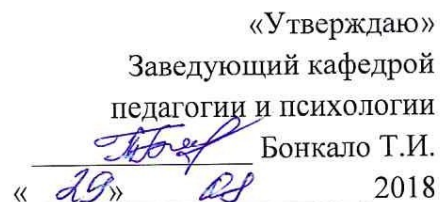 «Утверждаю»
Заведующий кафедрой
педагогии и психологии
Бонкало Т.И.
« 29» 2018